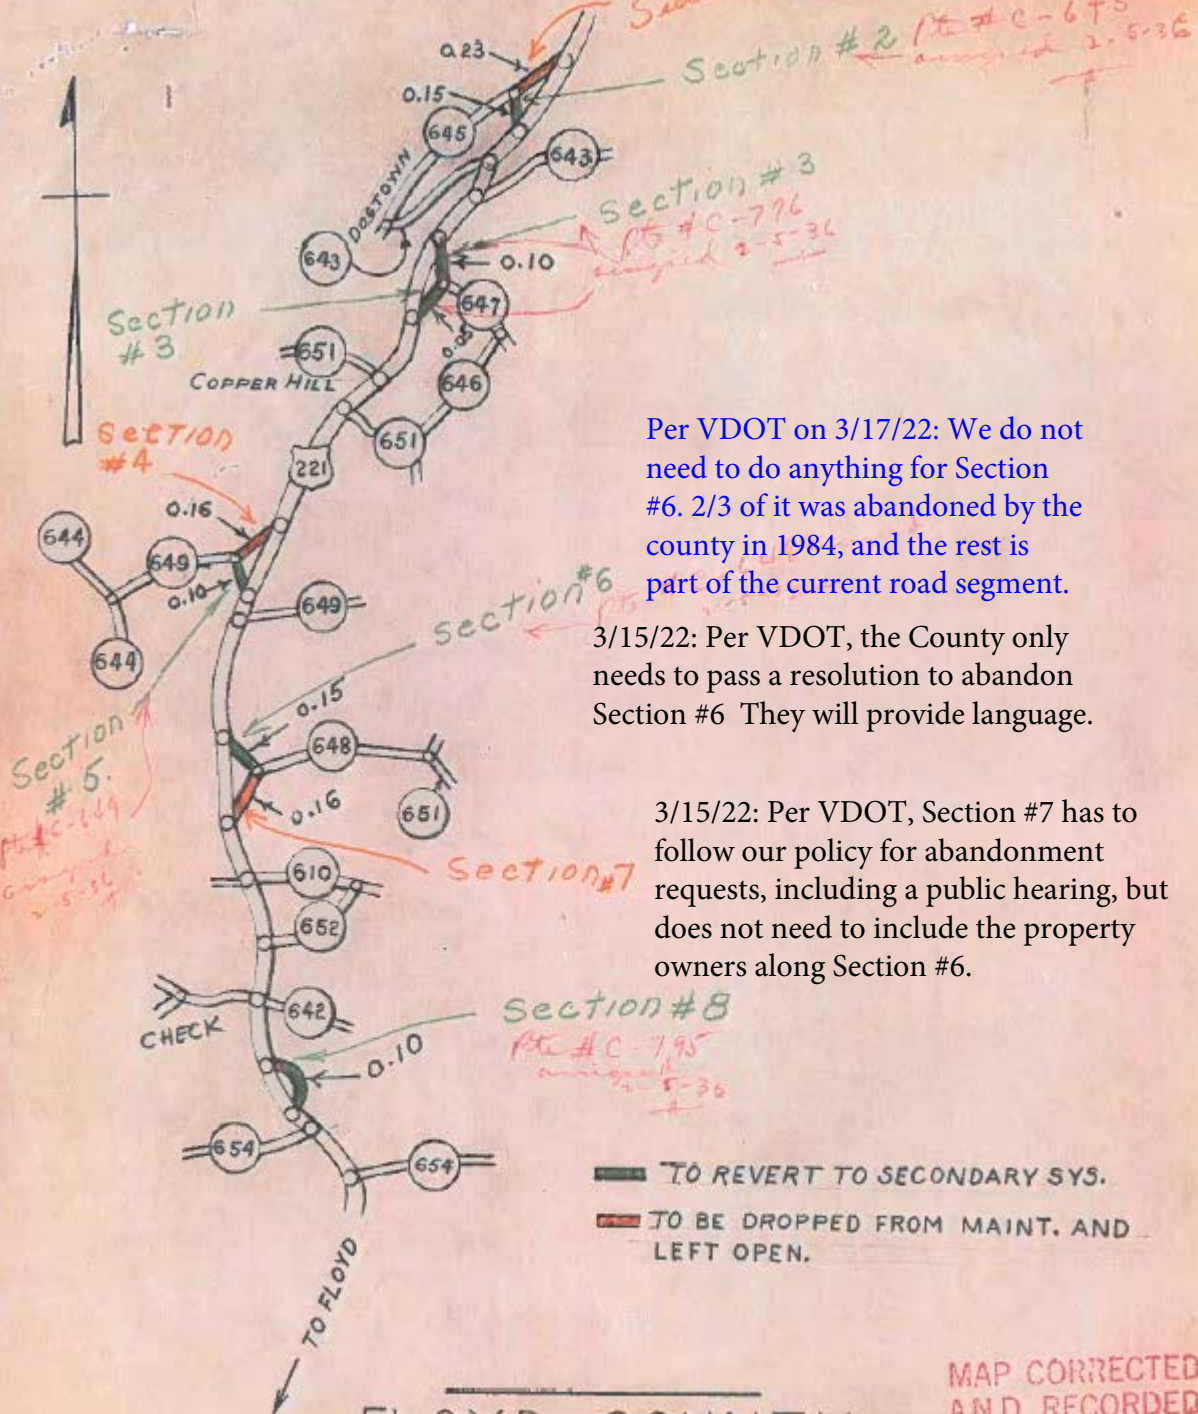 Sec
0.23
Section #2 Rte # C-645
assigned 2-5-36
0.15
645
643
DOGTOWN
Section #3
Rte # C-776
assigned 2-5-36
643
0.10
647
Section
#3
0.05
651
COPPER HILL
646
651
Section
#4
221
0.16
644
649
0.10
649
644
Section #6
Per VDOT on 3/17/22: We do not
need to do anything for Section
#6. 2/3 of it was abandoned by the
county in 1984, and the rest is
part of the current road segment.
3/15/22: Per VDOT, the County only
needs to pass a resolution to abandon
Section #6 They will provide language.
0.15
648
Section
#5.
Rte #C-649
assigned
2-5-36
0.16
651
3/15/22: Per VDOT, Section #7 has to
follow our policy for abandonment
requests, including a public hearing, but
does not need to include the property
owners along Section #6.
610
Section #7
652
642
CHECK
Section #8
Rte # C-795
assigned
2-5-36
0.10
654
654
TO REVERT TO SECONDARY SYS.
TO BE DROPPED FROM MAINT. AND
LEFT OPEN.
TO FLOYD
MAP CORRECTED
AND RECORDED
FLOYD COUNTY